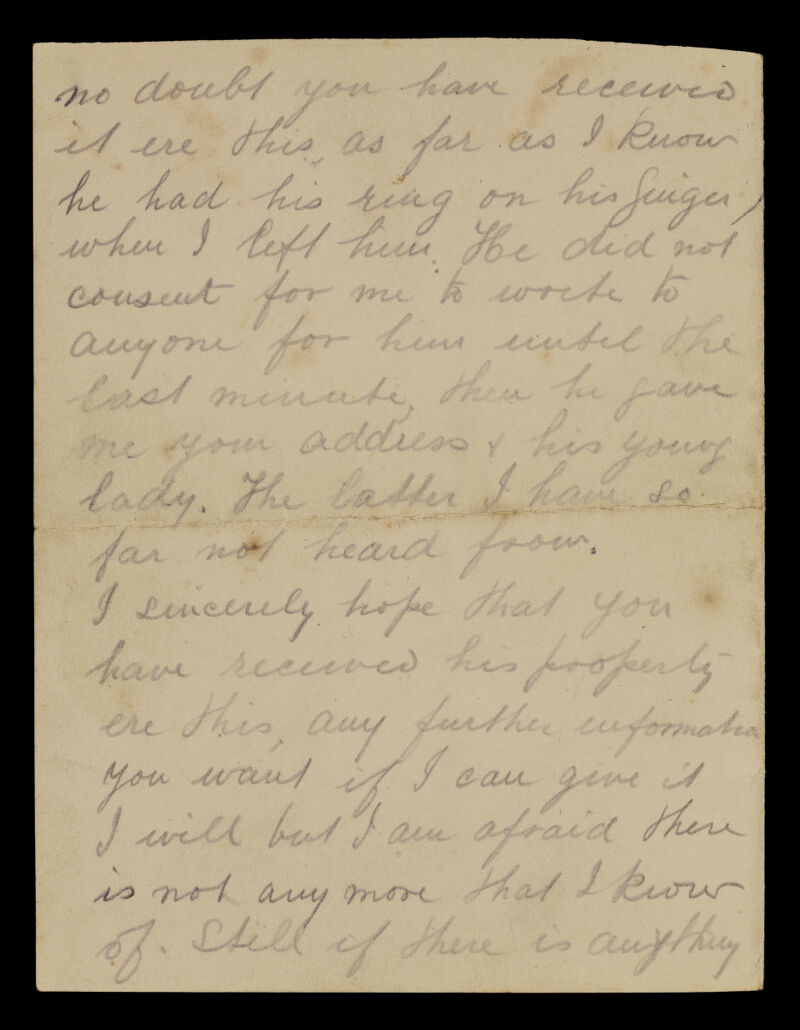 no doubt you have received
it ere this, as far as I know
he had his ring on his finger,
when I left him. He did not
consent for me to write to
anyone for him until the
last minute, then he gave
me your address & his young
lady. The latter I have so
far not heard from.
I sincerely hope that you
have received his property
ere this, any further information
you want if I can give it
I will but I am afraid there
is not any more that I know
of. Still if there is anything